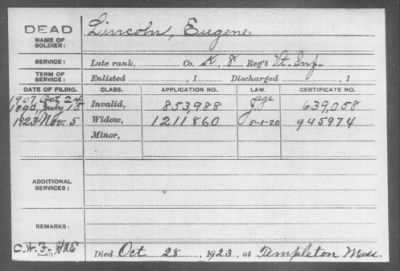 DEAD Lincoln, Eugene.
NAME OF SOLDIER:
SERVICE: Late rank, Co. K, 8 Reg't Vt. Inf.
TERM OF SERVICE: Enlisted , 1 Discharged , 1
DATE OF FILING. CLASS. APPLICATION NO. LAW. CERTIFICATE NO.
1907, Oct 2d age
1890, July 18 Invalid, 853,988 639,058
1923 Nov. 5 Widow, 1211860 5-1-20 945974
Minor,
ADDITIONAL SERVICES:
REMARKS:
Died Oct 28, 1923, at Templeton Mass.